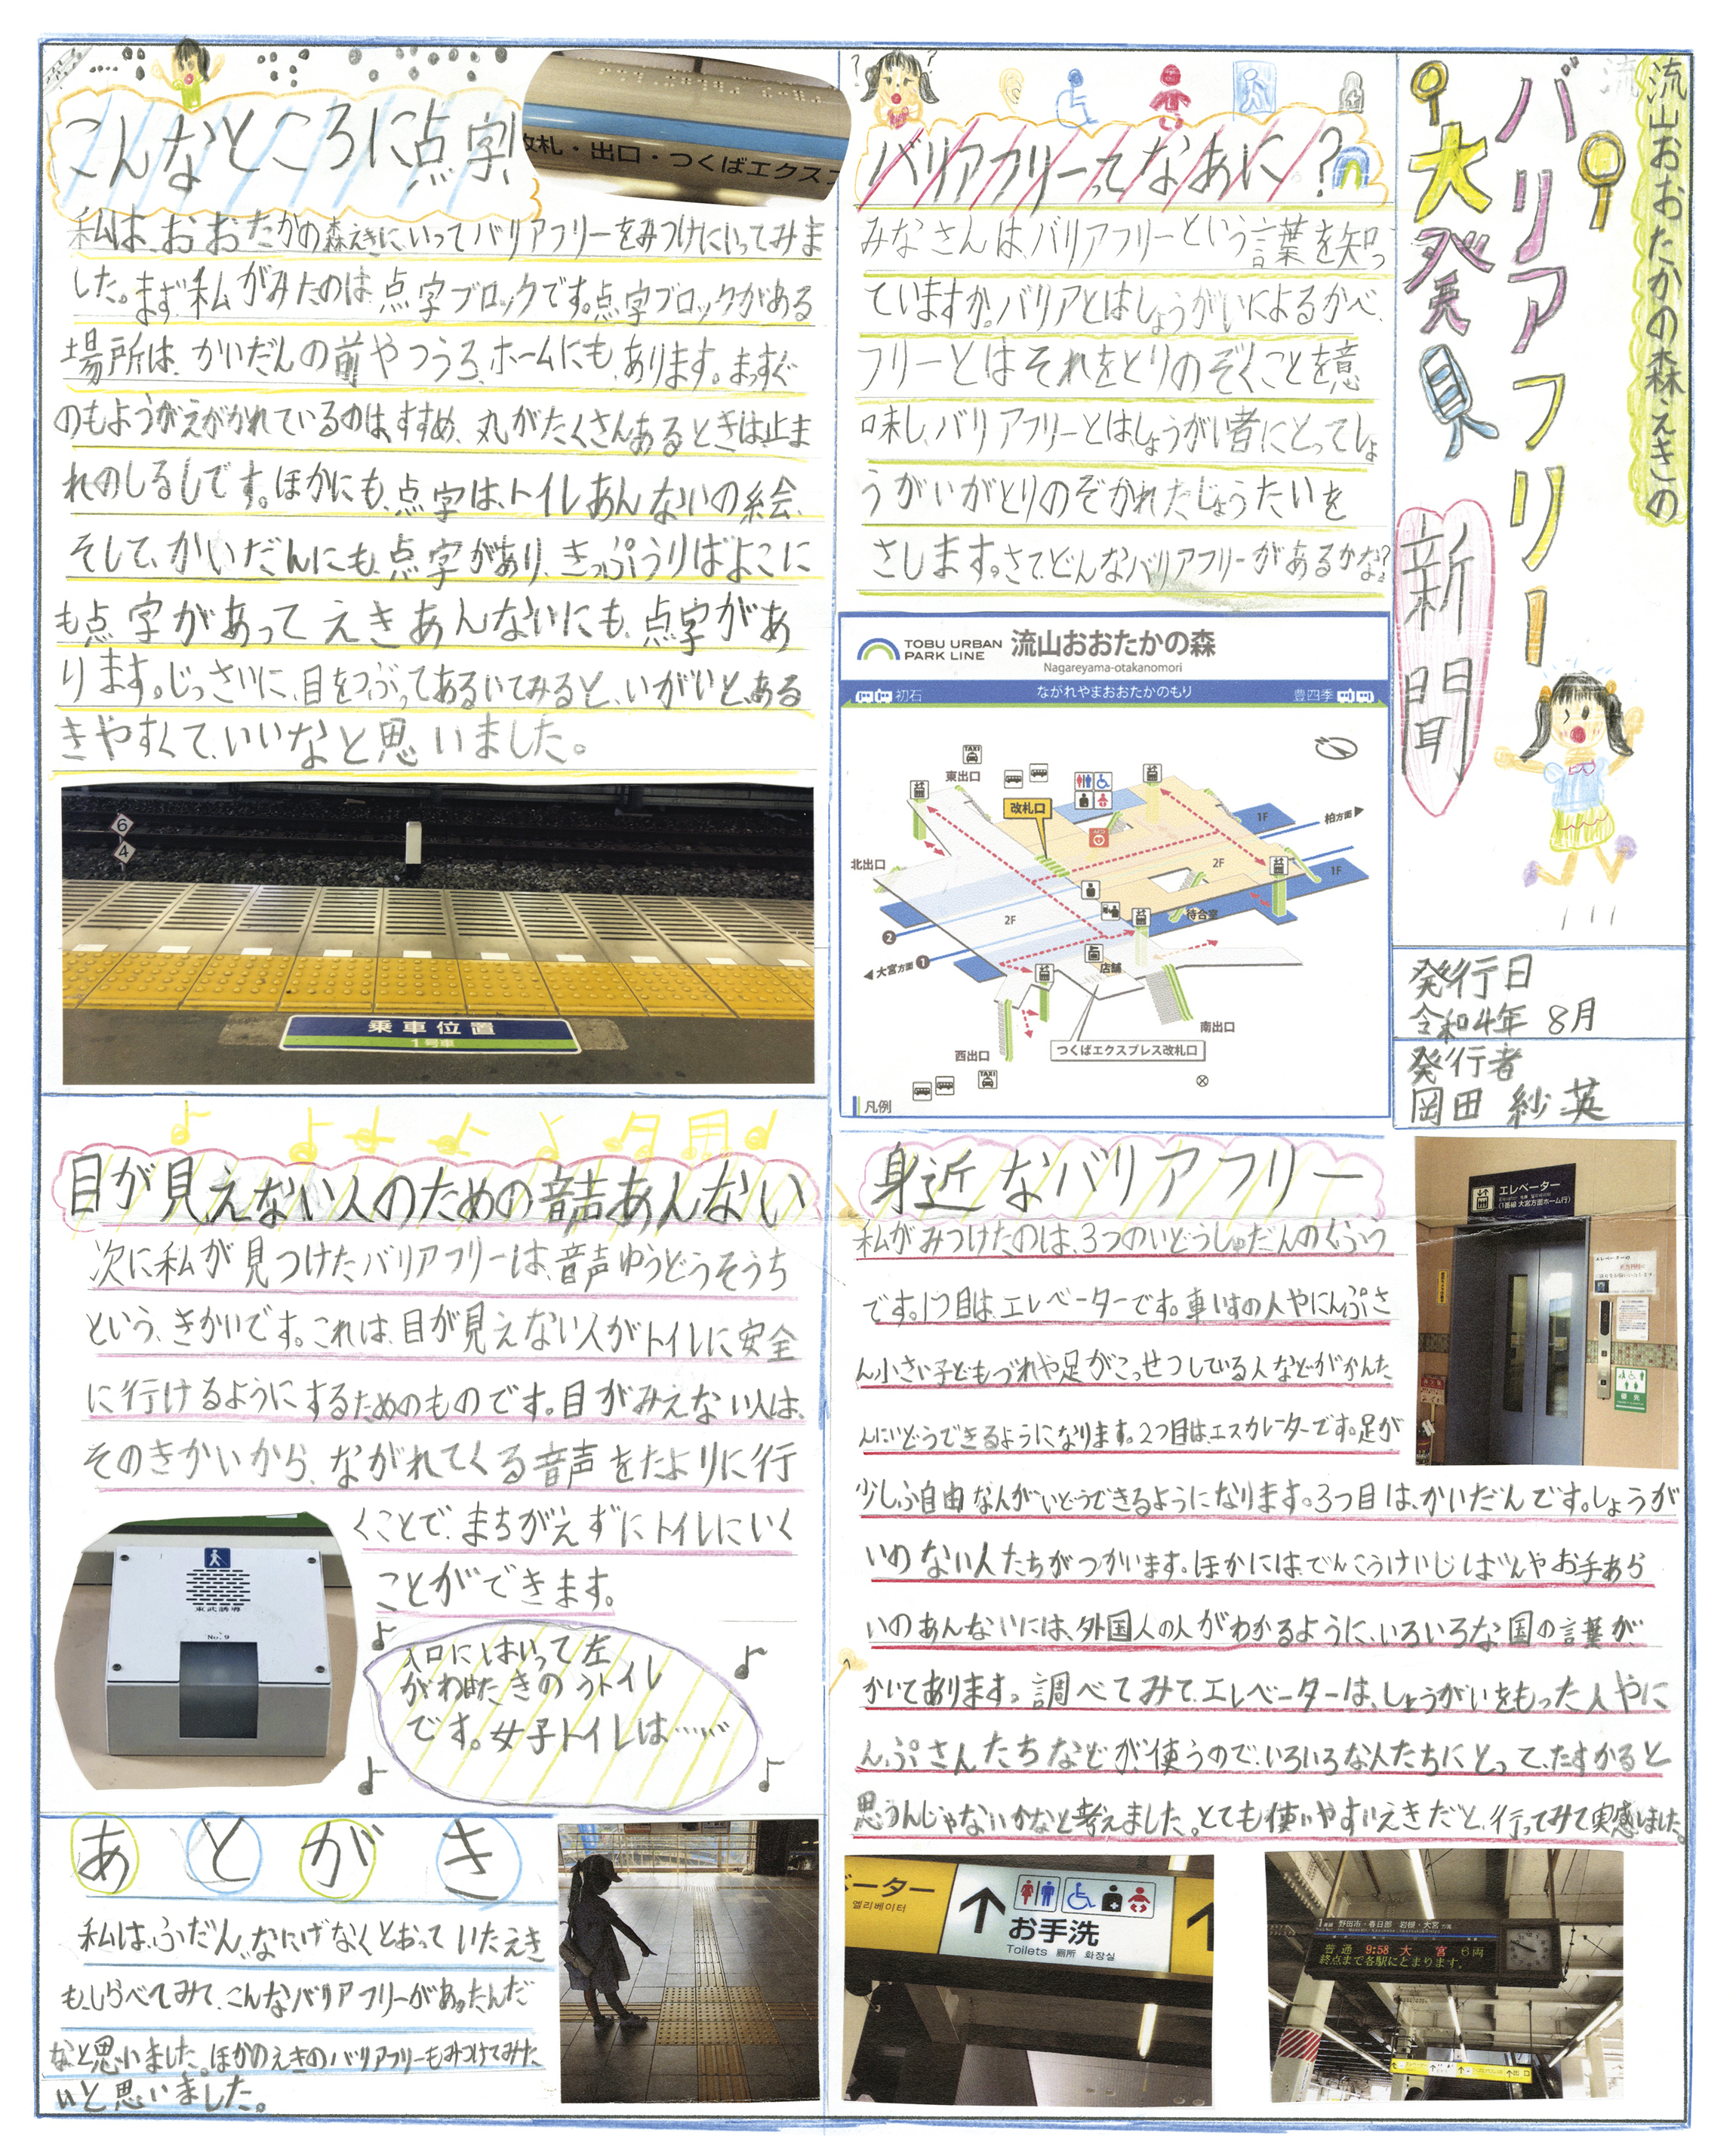 流山おおたかの森えきの
バリアフリー
大発見
新聞
発行日
令和4年 8月
発行者
岡田 紗英
バリアフリーってなあに?
みなさんは、バリアフリーという言葉を知っ
ていますか。バリアとはしょうがいによるかべ、
フリーとはそれをとりのぞくことを意
味し、バリアフリーとはしょうがい者にとってしょ
うがいがとりのぞかれたじょうたいを
さします。さて、どんなバリアフリーがあるかな?
TOBU URBAN
PARK LINE
流山おおたかの森
Nagareyama-otakanomori
初石
ながれやまおおたかのもり
豊四季
TAXI
東出口
改札口
1F
柏方面
北出口
2F
1F
2F
待合室
2
大宮方面 1
店舗
南出口
西出口
つくばエクスプレス改札口
TAXI
凡例
こんなところに点字!
改札・出口・つくばエクス
私は、おおたかの森えきにいってバリアフリーをみつけにいってみま
した。まず私がみたのは点字ブロックです。点字ブロックがある
場所は、かいだんの前やつうろ、ホームにも、あります。まっすぐ
のもようがえがかれているのは、すすめ、丸がたくさんあるときは、止ま
れのしるしです。ほかにも、点字は、トイレあんないの絵、
そして、かいだんにも、点字があり、きっぷうりばよこに
も点字があってえきあんないにも、点字があ
ります。じっさいに、目をつぶってあるいてみると、いがいと、ある
きやすくて、いいなと思いました。
6
4
乗車位置
1号車
身近なバリアフリー
私がみつけたのは、3つのいどうしゅだんのくふう
です。1つ目は、エレベーターです。車いすの人やにんぷさ
ん小さい子どもづれや足がこっせつしている人などがかんた
んにいどうできるようになります。2つ目は、エスカレーターです。足が
少しふ自由な人がいどうできるようになります。3つ目は、かいだんです。しょうが
いのない人たちがつかいます。ほかにはでんこうけいじばんやお手あら
いのあんないには、外国人の人がわかるように、いろいろな国の言葉が
かいてあります。調べてみて、エレベーターは、しょうがいをもった人やに
んぷさんたちなどが、使うので、いろいろな人たちにとって、たすかると
思うんじゃないかなと考えました。とても使いやすいえきだと、行ってみて実感しました。
エレベーター
(1番線 大宮方面ホーム行)
優先
ーター
엘리베이터
お手洗
Toilets 厠所 화장실
1番線 野田市・春日部 岩槻・大宮 方面
普通 9:58 大宮 6両
終点まで各駅にとまります。
目が見えない人のための音声あんない
次に私が見つけたバリアフリーは、音声ゆうどうそうち
という、きかいです。これは、目が見えない人がトイレに安全
に行けるようにするためのものです。目がみえない人は、
そのきかいから、ながれてくる音声をたよりに行
くことで、まちがえずにトイレにいく
ことができます。
東武誘導
No.9
入口にはいって左
がわ
トイレ
です。女子トイレは……
あとがき
私は、ふだん、なにげなくとおっていたえき
も、しらべてみて、こんなバリアフリーがあったんだ
なと思いました。ほかのえきのバリアフリーもみつけてみた
いと思いました。